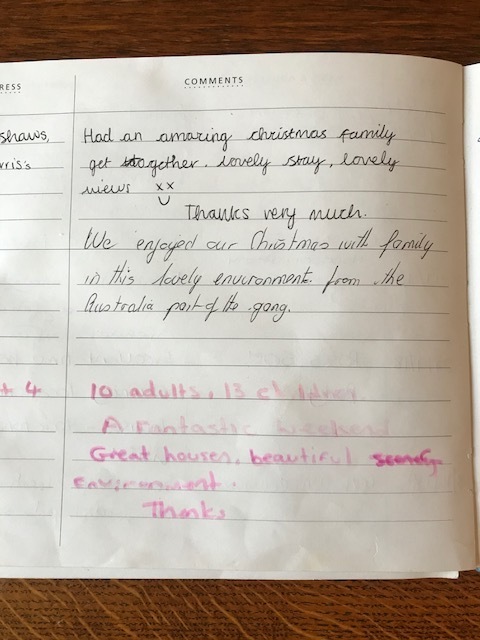 RESS
COMMENTS
shaws,
rris's
Had an amazing christmas family
get together. lovely stay, lovely
views xx
Thanks very much.
We enjoyed our Christmas with family
in this lovely environment. from the
Australia part of the gang.
+ 4
10 adults, 13 children
A Fantastic weekend
Great houses, beautiful scenery
Environment.
Thanks